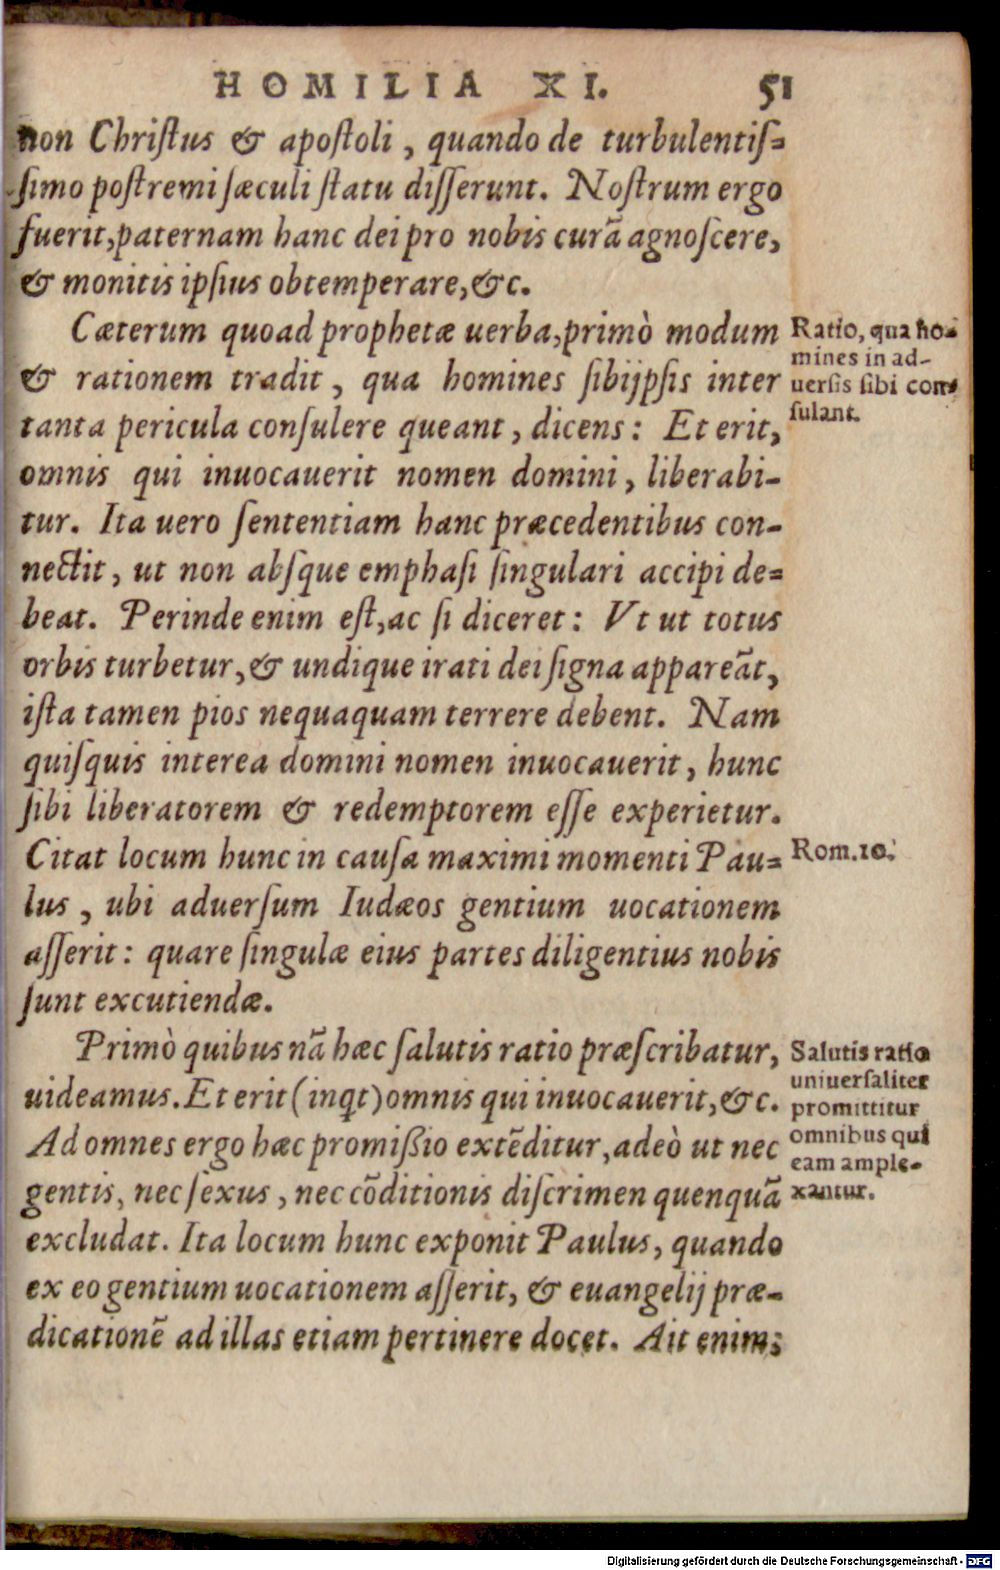 HOMILIA XI. 51
non Chriſtus & apoſtoli, quando de turbulentiſ-
ſimo poſtremi ſæculi ſtatu diſſerunt. Noſtrum ergo
fuerit, paternam hanc dei pro nobis curã agnoſcere,
& monitis ipſius obtemperare, &c.
Cæterum quoad prophetæ uerba, primò modum
& rationem tradit, qua homines ſibijpſis inter
tanta pericula conſulere queant, dicens: Et erit,
omnis qui inuocauerit nomen domini, liberabi-
tur. Ita uero ſententiam hanc præcedentibus con-
nectit, ut non abſque emphaſi ſingulari accipi de-
beat. Perinde enim eſt, ac ſi diceret: Vt ut totus
orbis turbetur, & undique irati dei ſigna appareãt,
iſta tamen pios nequaquam terrere debent. Nam
quiſquis interea domini nomen inuocauerit, hunc
ſibi liberatorem & redemptorem eſſe experietur.
Citat locum hunc in cauſa maximi momenti Pau-
lus, ubi aduerſum Iudæos gentium uocationem
aſſerit: quare ſingulæ eius partes diligentius nobis
ſunt excutiendæ.
Primò quibus nã hæc ſalutis ratio præſcribatur,
uideamus. Et erit (inqt) omnis qui inuocauerit, &c.
Ad omnes ergo hæc promißio extẽditur, adeò ut nec
gentis, nec ſexus, nec cõditionis diſcrimen quenquã
excludat. Ita locum hunc exponit Paulus, quando
ex eo gentium uocationem aſſerit, & euangelij præ-
dicationẽ ad illas etiam pertinere docet. Ait enim:
Ratio, qua ho-
mines in ad-
uerſis ſibi con-
ſulant.
Rom.10.
Salutis ratio
uniuerſaliter
promittitur
omnibus qui
eamample-
xantur.
Digitalisierung gefördert durch die Deutsche Forschungsgemeinschaft - DFG